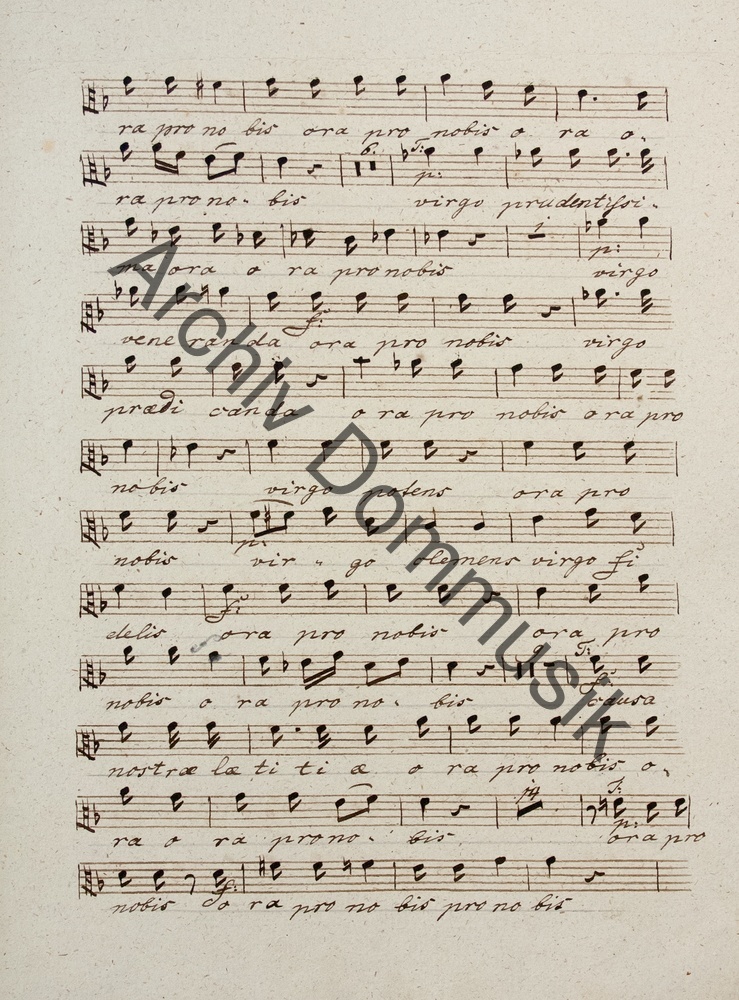 ra pro no bis ora pro nobis o ra o-
6. T: p:
ra pro no- bis virgo prudentissi-
1 p:
ma ora o ra pro nobis virgo
f:
vene randa ora pro nobis virgo
prædi canda o ra pro nobis ora pro
nobis virgo potens ora pro
p:
nobis vir- go clemens virgo fi
f:
delis ora pro nobis ora pro
9 T: f:
nobis o ra pro no- bis causa
nostræ læ ti ti æ o ra pro nobis o-
14 T: p:
ra o ra pro no- bis ora pro
f:
nobis o ra pro no bis pro no bis
Archiv Dommusik